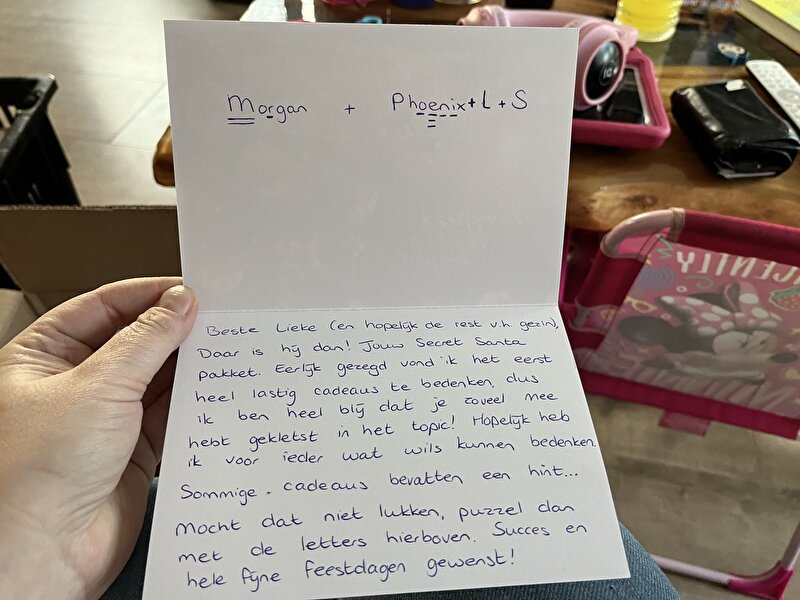 Morgan + Phoenix + L + S
Beste Lieke (en hopelijk de rest v.h. gezin),
Daar is hij dan! Jouw Secret Santa
pakket. Eerlijk gezegd vond ik het eerst
heel lastig cadeaus te bedenken, dus
ik ben heel blij dat je zoveel mee
hebt gekletst in het topic! Hopelijk heb
ik voor ieder wat wils kunnen bedenken.
Sommige cadeaus bevatten een hint...
Mocht dat niet lukken, puzzel dan
met de letters hierboven. Succes en
hele fijne feestdagen gewenst!